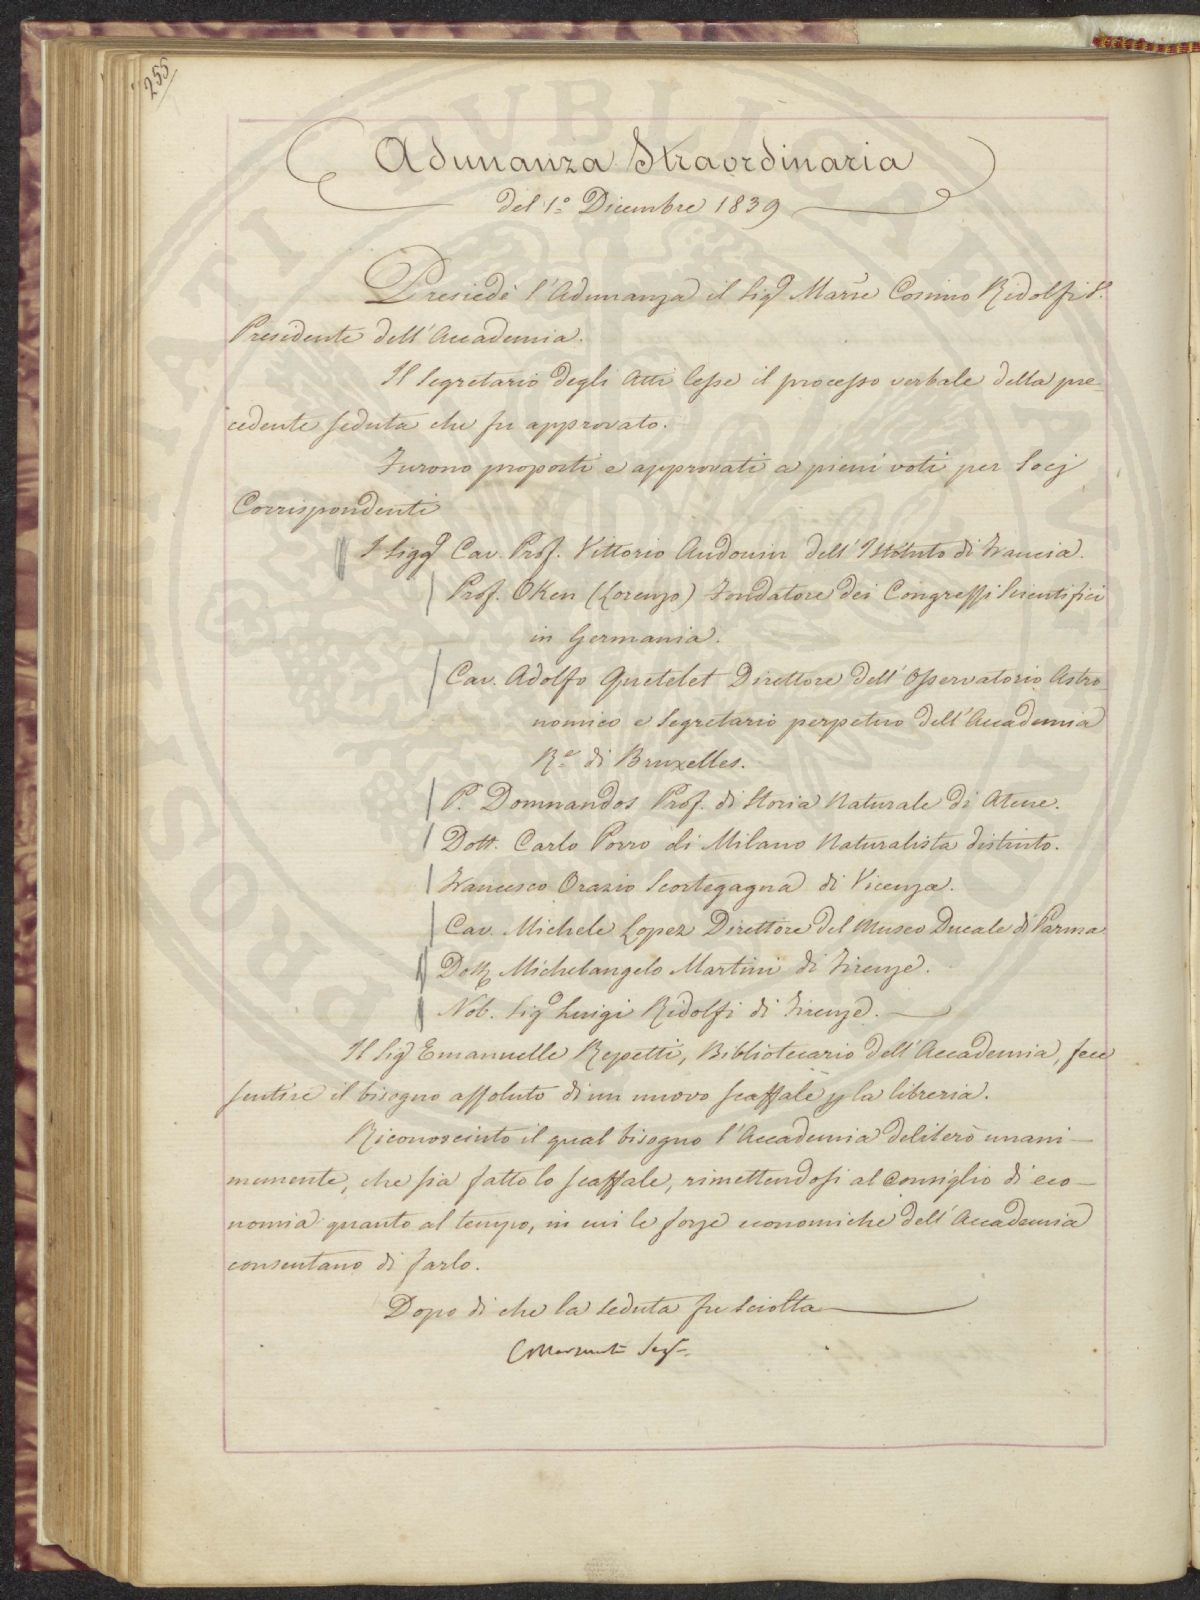 255
Adunanza Straordinaria
del 1.º Dicembre 1839
Presiedè l'Adunanza il Sigr Marse Cosimo Ridolfi V.
Presidente dell'Accademia.
Il Segretario degli Atti lesse il processo verbale della pre-
cedente seduta che fu approvato.
Furono proposti e approvati a pieni voti per Socj
Corrispondenti
I Sigg Cav. Prof. Vittorio Audouin dell'Istituto di Francia.
Prof. Oken (Lorenzo) Fondatore dei Congressi Scientifici
in Germania.
Cav. Adolfo Quetelet Direttore dell'Osservatorio Astro-
nomico e Segretario perpetuo dell'Accademia
Re. di Bruxelles.
P. Domnandos Prof. di Storia Naturale di Atene.
Dott. Carlo Porro di Milano Naturalista distinto.
Francesco Orazio Scortegagna di Vicenza.
Cav. Michele Lopez Direttore del Museo Ducale di Parma
Dott Michelangelo Martini di Firenze.
Nob. Sigr Luigi Ridolfi di Firenze.
Il Sigr Emanuelle Repetti, Bibliotecario dell'Accademia, fece
sentire il bisogno assoluto di un nuovo scaffale p la libreria.
Riconosciuto il qual bisogno l'Accademia deliberò unani-
memente, che sia fatto lo scaffale, rimettendosi al Consiglio di eco-
nomia quanto al tempo, in cui le forze economiche dell'Accademia
consentano di farlo.
Dopo di che la seduta fu sciolta
Segr.
PROSPERITATI PUBLICAE AUGENDAE